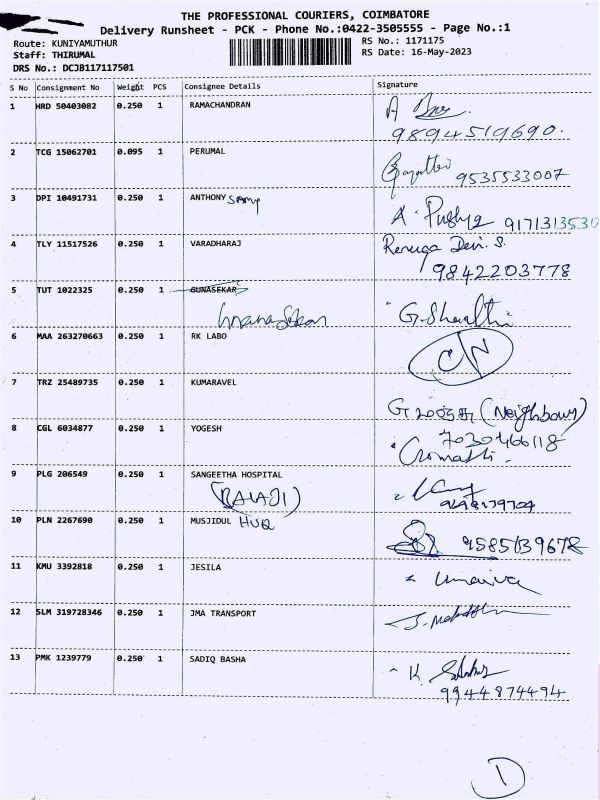 THE PROFESSIONAL COURIERS, COIMBATORE
Delivery Runsheet - PCK - Phone No.:0422-3505555 - Page No.:1
Route: KUNIYAMUTHUR
RS No.: 1171175
Staff: THIRUMAL
RS Date: 16-May-2023
DRS No.: DCJB117117501
S No Consignment No Weight PCS Consignee Details Signature
1 HRD 50403082 0.250 1 RAMACHANDRAN A
9894519690.
2 TCG 15062701 0.095 1 PERUMAL
9535533007
3 DPI 10491731 0.250 1 ANTHONY samy A. Pushpa 9171313530
4 TLY 11517526 0.250 1 VARADHARAJ Renuga Devi. S.
9842203778
5 TUT 1022325 0.250 1 GUNASEKAR G. Shanthi
Gnanasekaran
6 MAA 263270663 0.250 1 RK LABO CN
7 TRZ 25489735 0.250 1 KUMARAVEL
(Neighbour)
8 CGL 6034877 0.250 1 YOGESH 7030466118
Gomathi.
9 PLG 206549 0.250 1 SANGEETHA HOSPITAL
(BALAJI)
10 PLN 2267690 0.250 1 MUSJIDUL HUQ 9585139678
11 KMU 3392818 0.250 1 JESILA
12 SLM 319728346 0.250 1 JMA TRANSPORT
13 PMK 1239779 0.250 1 SADIQ BASHA K.
9944874494
1